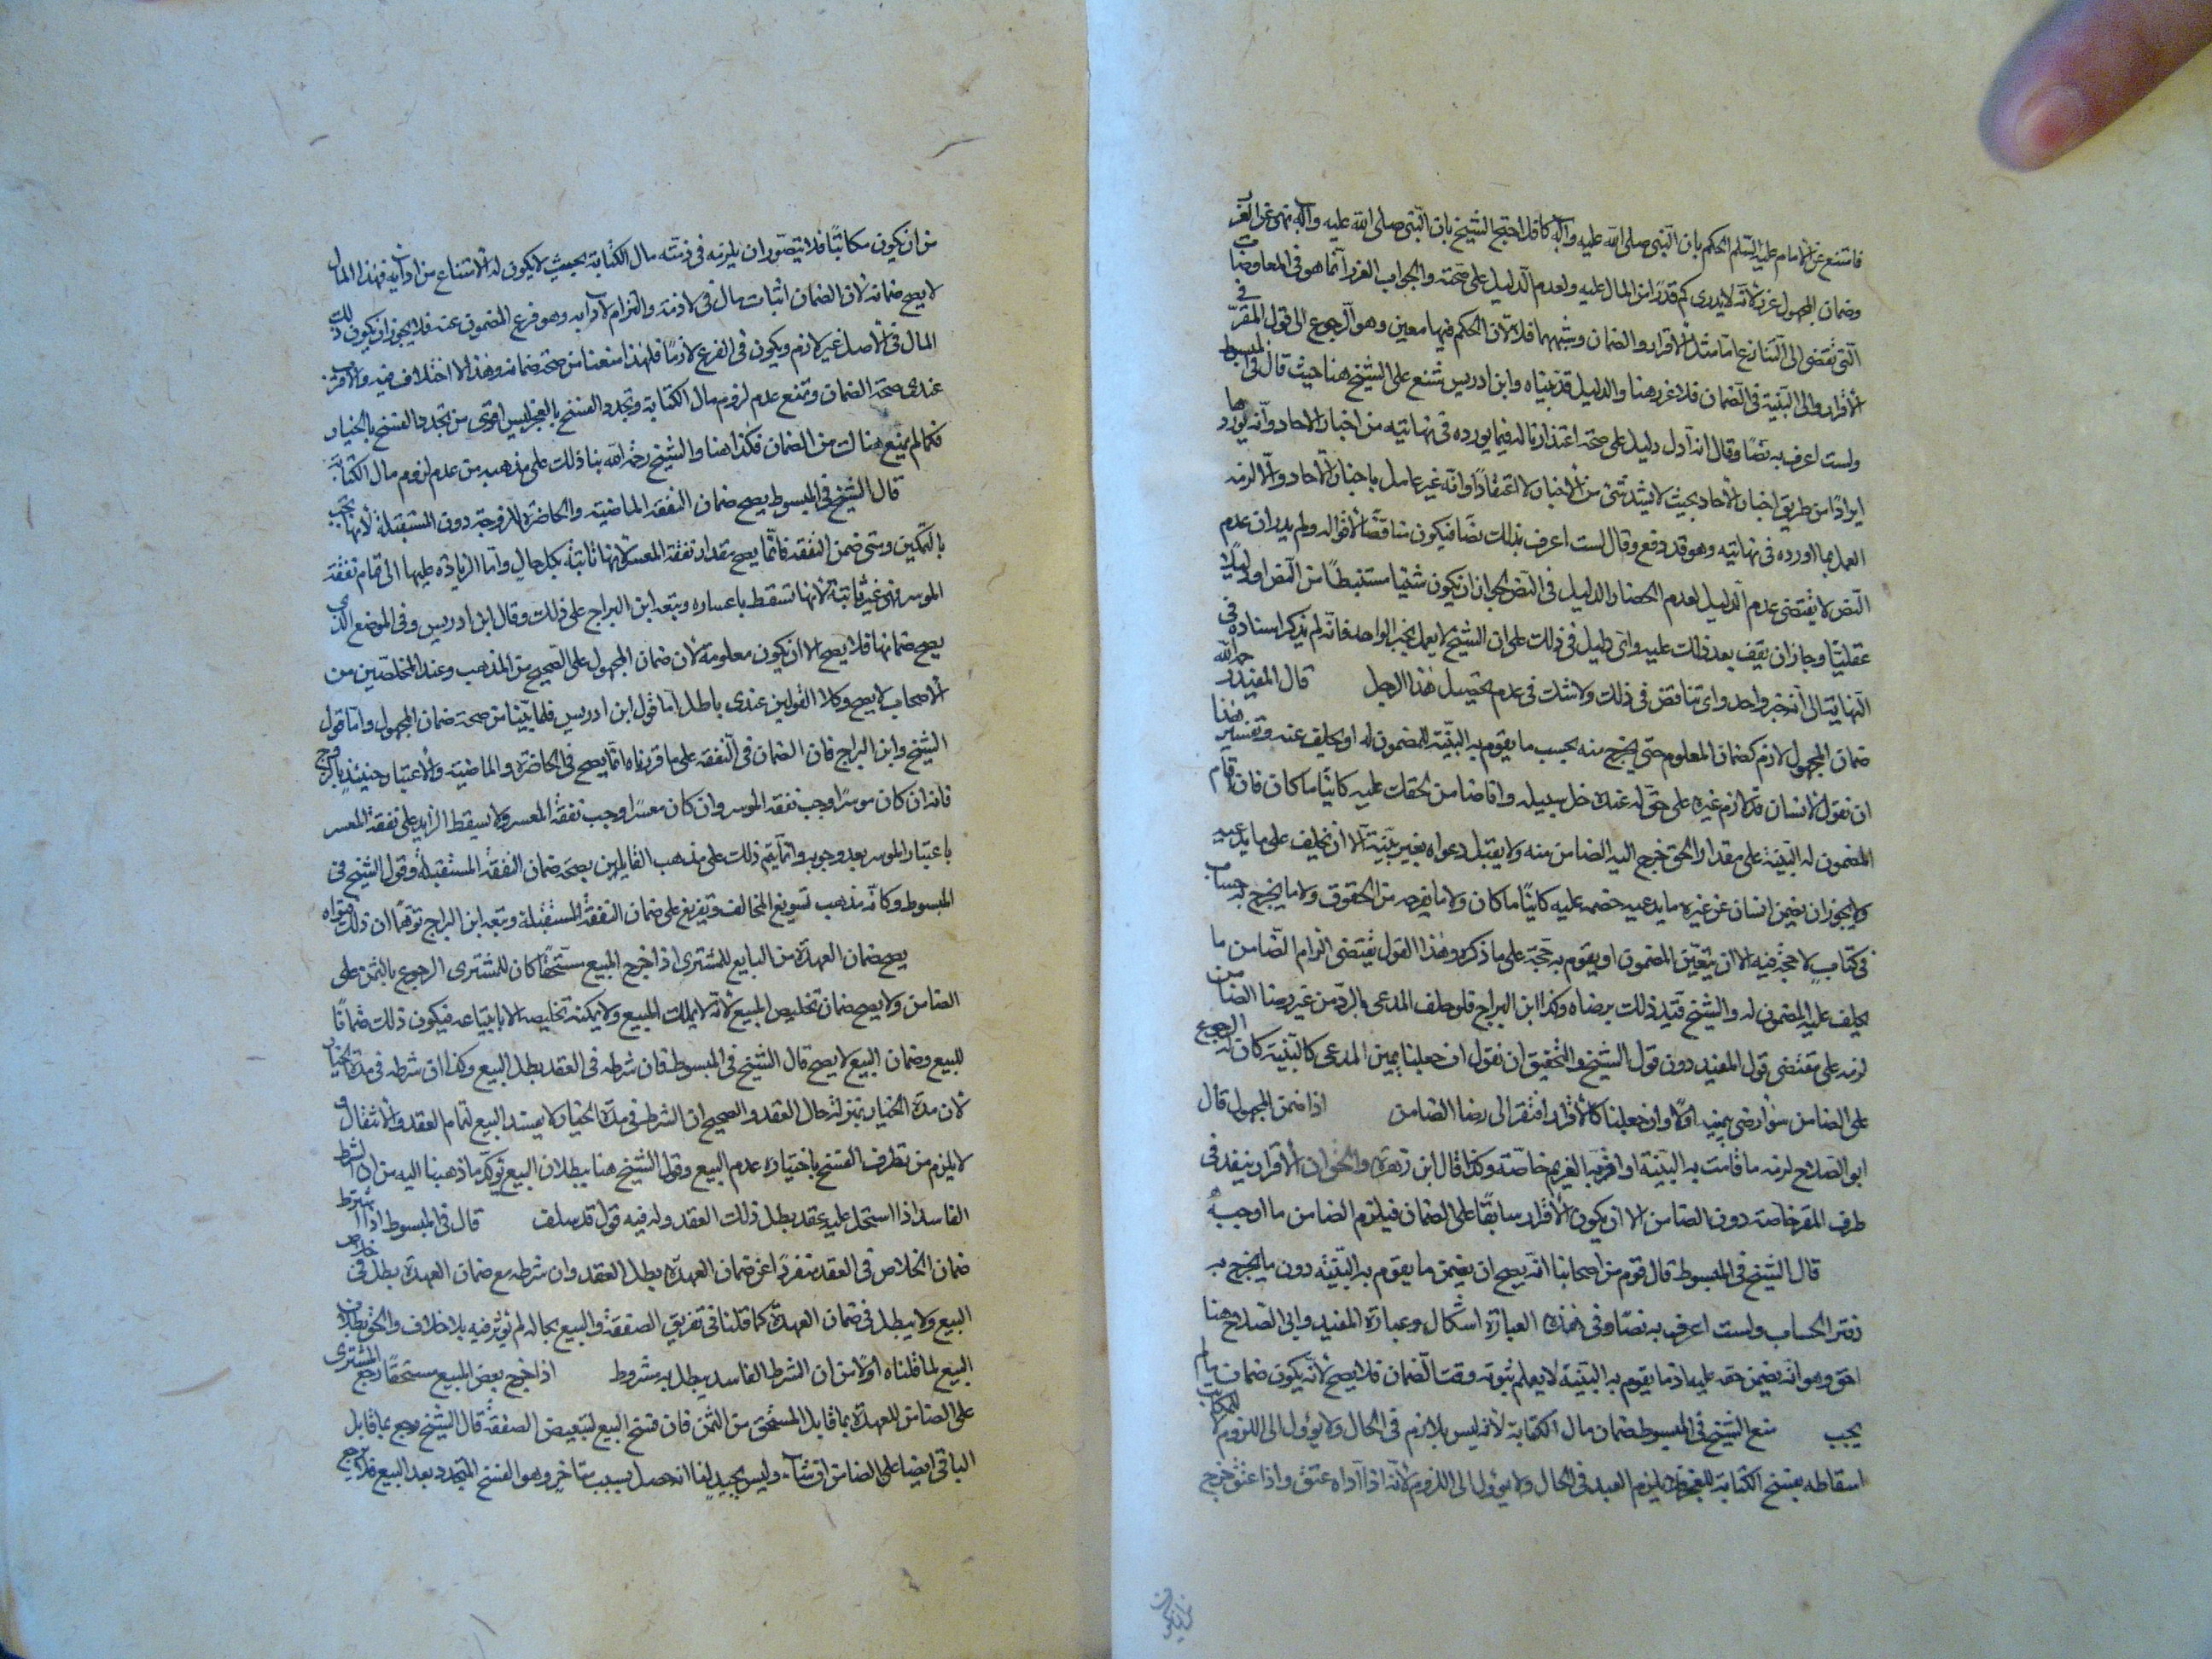 فامتنع عن الامام عليه السلام الحكم بان النبي صلى الله عليه وآله كافل احتج الشيخ بان النبي صلى الله عليه وآله نهى عن الغرر
وضمان المجهول غرر لانه لا يدرى كم قدرا من المال عليه ولعدم الدليل على صحته والجواب الغرر انما هو في المعاوضات
التي تفضى الى التنازع اما مثل الاقرار والضمان وشبههما فلا لان الحكم فيها معين وهو الرجوع الى قول المقر في
الاقرار والى البينة في الضمان فلا غرر هنا والدليل قد بيناه وابن ادريس شنع على الشيخ هنا حيث قال في المبسوط
ولست اعرف به نصا وقال انه ادل دليل على صحة اعتذارنا له فيما يورده في نهايته من اخبار الاحاد وانه يوردها
ايرادا من طريق اخبار الاحاد بحيث لا يشذ شئ من الاخبار لا اعتقادا وانه غير عامل باخبار الآحاد والا لزمه
العمل بما اورده في نهايته وهو قد دفع وقال لست اعرف بذلك نصا فيكون مناقضا لاقواله ولم يدر ان عدم
النص لا يقتضى عدم الدليل لعدم انحصار الدليل في النص لجواز ان يكون شيئا مستنبطا من النص او دليلا
عقليا وجاز ان يقف بعد ذلك عليه واى دليل في ذلك على ان الشيخ لا يعمل بخبر الواحد فانه لم يذكر اسناده في
النهاية الى انه خبر واحد واى تناقض في ذلك ولا شك في عدم تحصيل هذا الرجل قال المفيد رحمه الله
ضمان المجهول لازم كضمان المعلوم حتى يخرج منه بحسب ما يقوم به البينة للمضمون له او يحلف عنه وتفسير هذا
ان نقول لانسان قد لازم غيره على حق له عنده خل سبيله وانا ضامن لحقك عليه كائنا ما كان فان اقام
المضمون له البينة على مقدار الحق خرج اليه الضامن منه ولا يقبل دعواه بغير بينة الا ان يحلف على ما يدعيه
ولا يجوز ان يضمن انسان عن غيره ما يدعيه خصمه عليه كائنا ما كان ولا ما يقر به من الحقوق ولا ما يخرج به حساب
في كتاب لا حجة فيه الا ان يتعين المضمون او يقوم به حجة على ما ذكره وهذا القول يقتضى الزام الضامن ما
يحلف عليه المضمون له والشيخ قيد ذلك برضاه وكذا ابن البراج فلو حلف المدعى بالرد من غير رضا الضامن
لزمه على مقتضى قول المفيد دون قول الشيخ والتحقيق ان نقول ان جعلنا يمين المدعى كالبينة كان له الرجوع
على الضامن سواء رضى بيمينه او لا وان جعلنا كالاقرار افتقر الى رضا الضامن اذا ضمن المجهول قال
ابو الصلاح لزمه ما قامت به البينة او اقر به الغريم خاصة وكذا قال ابن زهرة والحق ان الاقرار ينفذ في
طرف المقر خاصة دون الضامن الا ان يكون الاقرار سابقا على الضمان فيلزم الضامن ما اوجبه
قال الشيخ في المبسوط قال قوم من اصحابنا انه يصح ان يضمن ما يقوم به البينة دون ما يخرج به
دفتر الحساب ولست اعرف به نصا وفي هذه العبارة اشكال وعبارة المفيد وابى الصلاح هنا
احق وهو انه يضمن حقه عليه اذ ما يقوم به البينة لا يعلم ثبوته وقت الضمان فلا يصح لانه يكون ضمان ما لم
يجب منع الشيخ في المبسوط ضمان مال الكتابة لانه ليس بلازم في الحال ولا يؤول الى اللزوم لان للمكاتب
اسقاطه بفسخ الكتابة للعجز فلا يلزم العبد في الحال ولا يؤول الى اللزوم لانه اذا آداه عتق واذا عتق خرج
من ان يكون مكاتبا فلا يتصور ان يلزمه في ذمته مال الكتابة بحيث لا يكون له الامتناع من ادائه فهذا المال
لا يصح ضمانه لان الضمان اثبات مال في الذمة والتزام لادائه وهو فرع المضمون عنه فلا يجوز ان يكون ذلك
المال في الاصل غير لازم ويكون في الفرع لازما فلهذا منعنا من صحة ضمانه وهذا لا اختلاف فيه والاقرب
عندى صحة الضمان ونمنع عدم لزوم مال الكتابة وتجدد الفسخ بالعجز ليس اقوى من تجدد الفسخ بالخيار
فكما لم يمنع هناك من الضمان فكذا هنا والشيخ رحمه الله بنا ذلك على مذهبه من عدم لزوم مال الكتابة
قال الشيخ في المبسوط يصح ضمان النفقة الماضية والحاضرة للزوجة دون المستقبلة لانها تجب
بالتمكين ومتى ضمن النفقة فانما يصح مقدار نفقة المعسر لانها ثابتة بكل حال واما الزيادة عليها الى تمام نفقة
الموسر فهي غير ثابتة لانها تسقط باعساره وتبعه ابن البراج على ذلك وقال ابن ادريس وفي الموضع الذى
يصح ضمانها فلا يصح الا ان يكون معلومة لان ضمان المجهول على الصحيح من المذهب وعند المحصلين من
الاصحاب لا يصح وكلا القولين عندى باطل اما قول ابن ادريس فلما بينا من صحة ضمان المجهول واما قول
الشيخ وابن البراج فان الضمان في النفقة على ما قررناه انما يصح في الحاضرة والماضية والاعتبار حينئذ بالزوج
فانه ان كان موسرا وجب نفقة الموسر وان كان معسرا وجب نفقة المعسر ولا يسقط الزايد على نفقة المعسر
باعتبار الموسر بعد وجوبه وانما يتم ذلك على مذهب القايلين بصحة ضمان النفقة المستقبلة وقول الشيخ في
المبسوط وكانه مذهب تسويغ المخالف وتفريع على ضمان النفقة المستقبلة وتبعه ابن البراج توهما ان ذلك فتواه
يصح ضمان العهدة من البايع للمشترى اذا خرج المبيع مستحقا كان للمشترى الرجوع بالثمن على
الضامن ولا يصح ضمان تخليص المبيع لانه لا يملك المبيع ولا يمكنه تخليصه الا بابتياعه فيكون ذلك ضمانا
للبيع وضمان البيع لا يصح قال الشيخ في المبسوط فان شرطه في العقد بطل البيع وكذا ان شرطه في مدة الخيار
لان مدة الخيار بمنزلة حال العقد والصحيح ان الشرط في مدة الخيار لا يفسد البيع لتمام العقد والانتقال و
لا يلزم من تطرق الفسخ باختياره عدم البيع وقول الشيخ هنا ببطلان البيع يؤكد ما ذهبنا اليه من ان الشرط
الفاسد اذا اشتمل عليه عقد بطل ذلك العقد وله فيه قول قد سلف قال في المبسوط اذا اشترط
ضمان الخلاص في العقد منفردا عن ضمان العهدة بطل العقد وان شرطه مع ضمان العهدة بطل في خلاص
البيع ولا يبطل في ضمان العهدة كما قلنا في تفريق الصفقة والبيع بحاله لم يؤثر فيه بلا خلاف والحق بطلان
البيع لما قلناه اولا من ان الشرط الفاسد يبطل به مشروط اذا خرج بعض المبيع مستحقا رجع المشترى
على الضامن للعهدة بما قابل المستحق من الثمن فان فسخ البيع لتبعيض الصفقة قال الشيخ رجع بما قابل
الباقي ايضا على الضامن ان شاء وليس بجيد لنا انه حصل بسبب متاخر وهو الفسخ المتجدد بعد البيع فلا يرجع